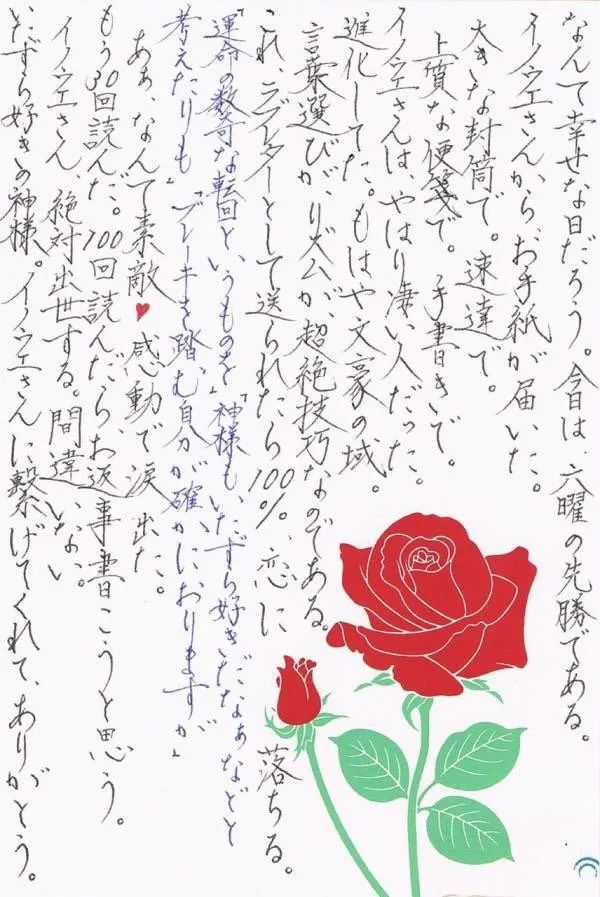 なんて幸せな日だろう。今日は、六曜の先勝である。
イノウエさんから、お手紙が届いた。
大きな封筒で。速達で。
上質な便箋で。手書きで。
イノウエさんは、やはり凄い人だった。
進化してた。もはや文豪の域。
言葉選びが、リズムが、超絶技巧なのである。
これ、ラブレターとして送られたら100%、恋に落ちる。
「運命の数奇な転回というものを」「神様もいたずら好きだなぁなどと
考えたりも」「ブレーキを踏む自分が確かにおりますが」
あぁ、なんて素敵♥感動で涙出た。
もう30回読んだ。100回読んだら、お返事書こうと思う。
イノウエさん、絶対出世する。間違いない。
いたずら好きの神様。イノウエさんに繋げてくれて、ありがとう。